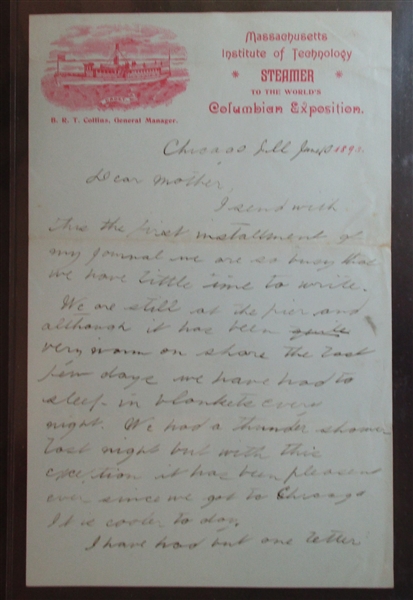 Massachusetts
Institute of Technology
* STEAMER *
TO THE WORLD'S
Columbian Exposition.
B. R. T. Collins, General Manager.
Chicago Ill June 189
Dear Mother,
I send with
this the first installment of
my journal we are so busy that
we have little time to write.
We are still at the pier and
although it has been quite
very warm on shore the last
few days we have had to
sleep in blankets every
night. We had a thunder shower
last night but with this
exception it has been pleasant
ever since we got to Chicago
It is cooler to day.
I have had but one letter